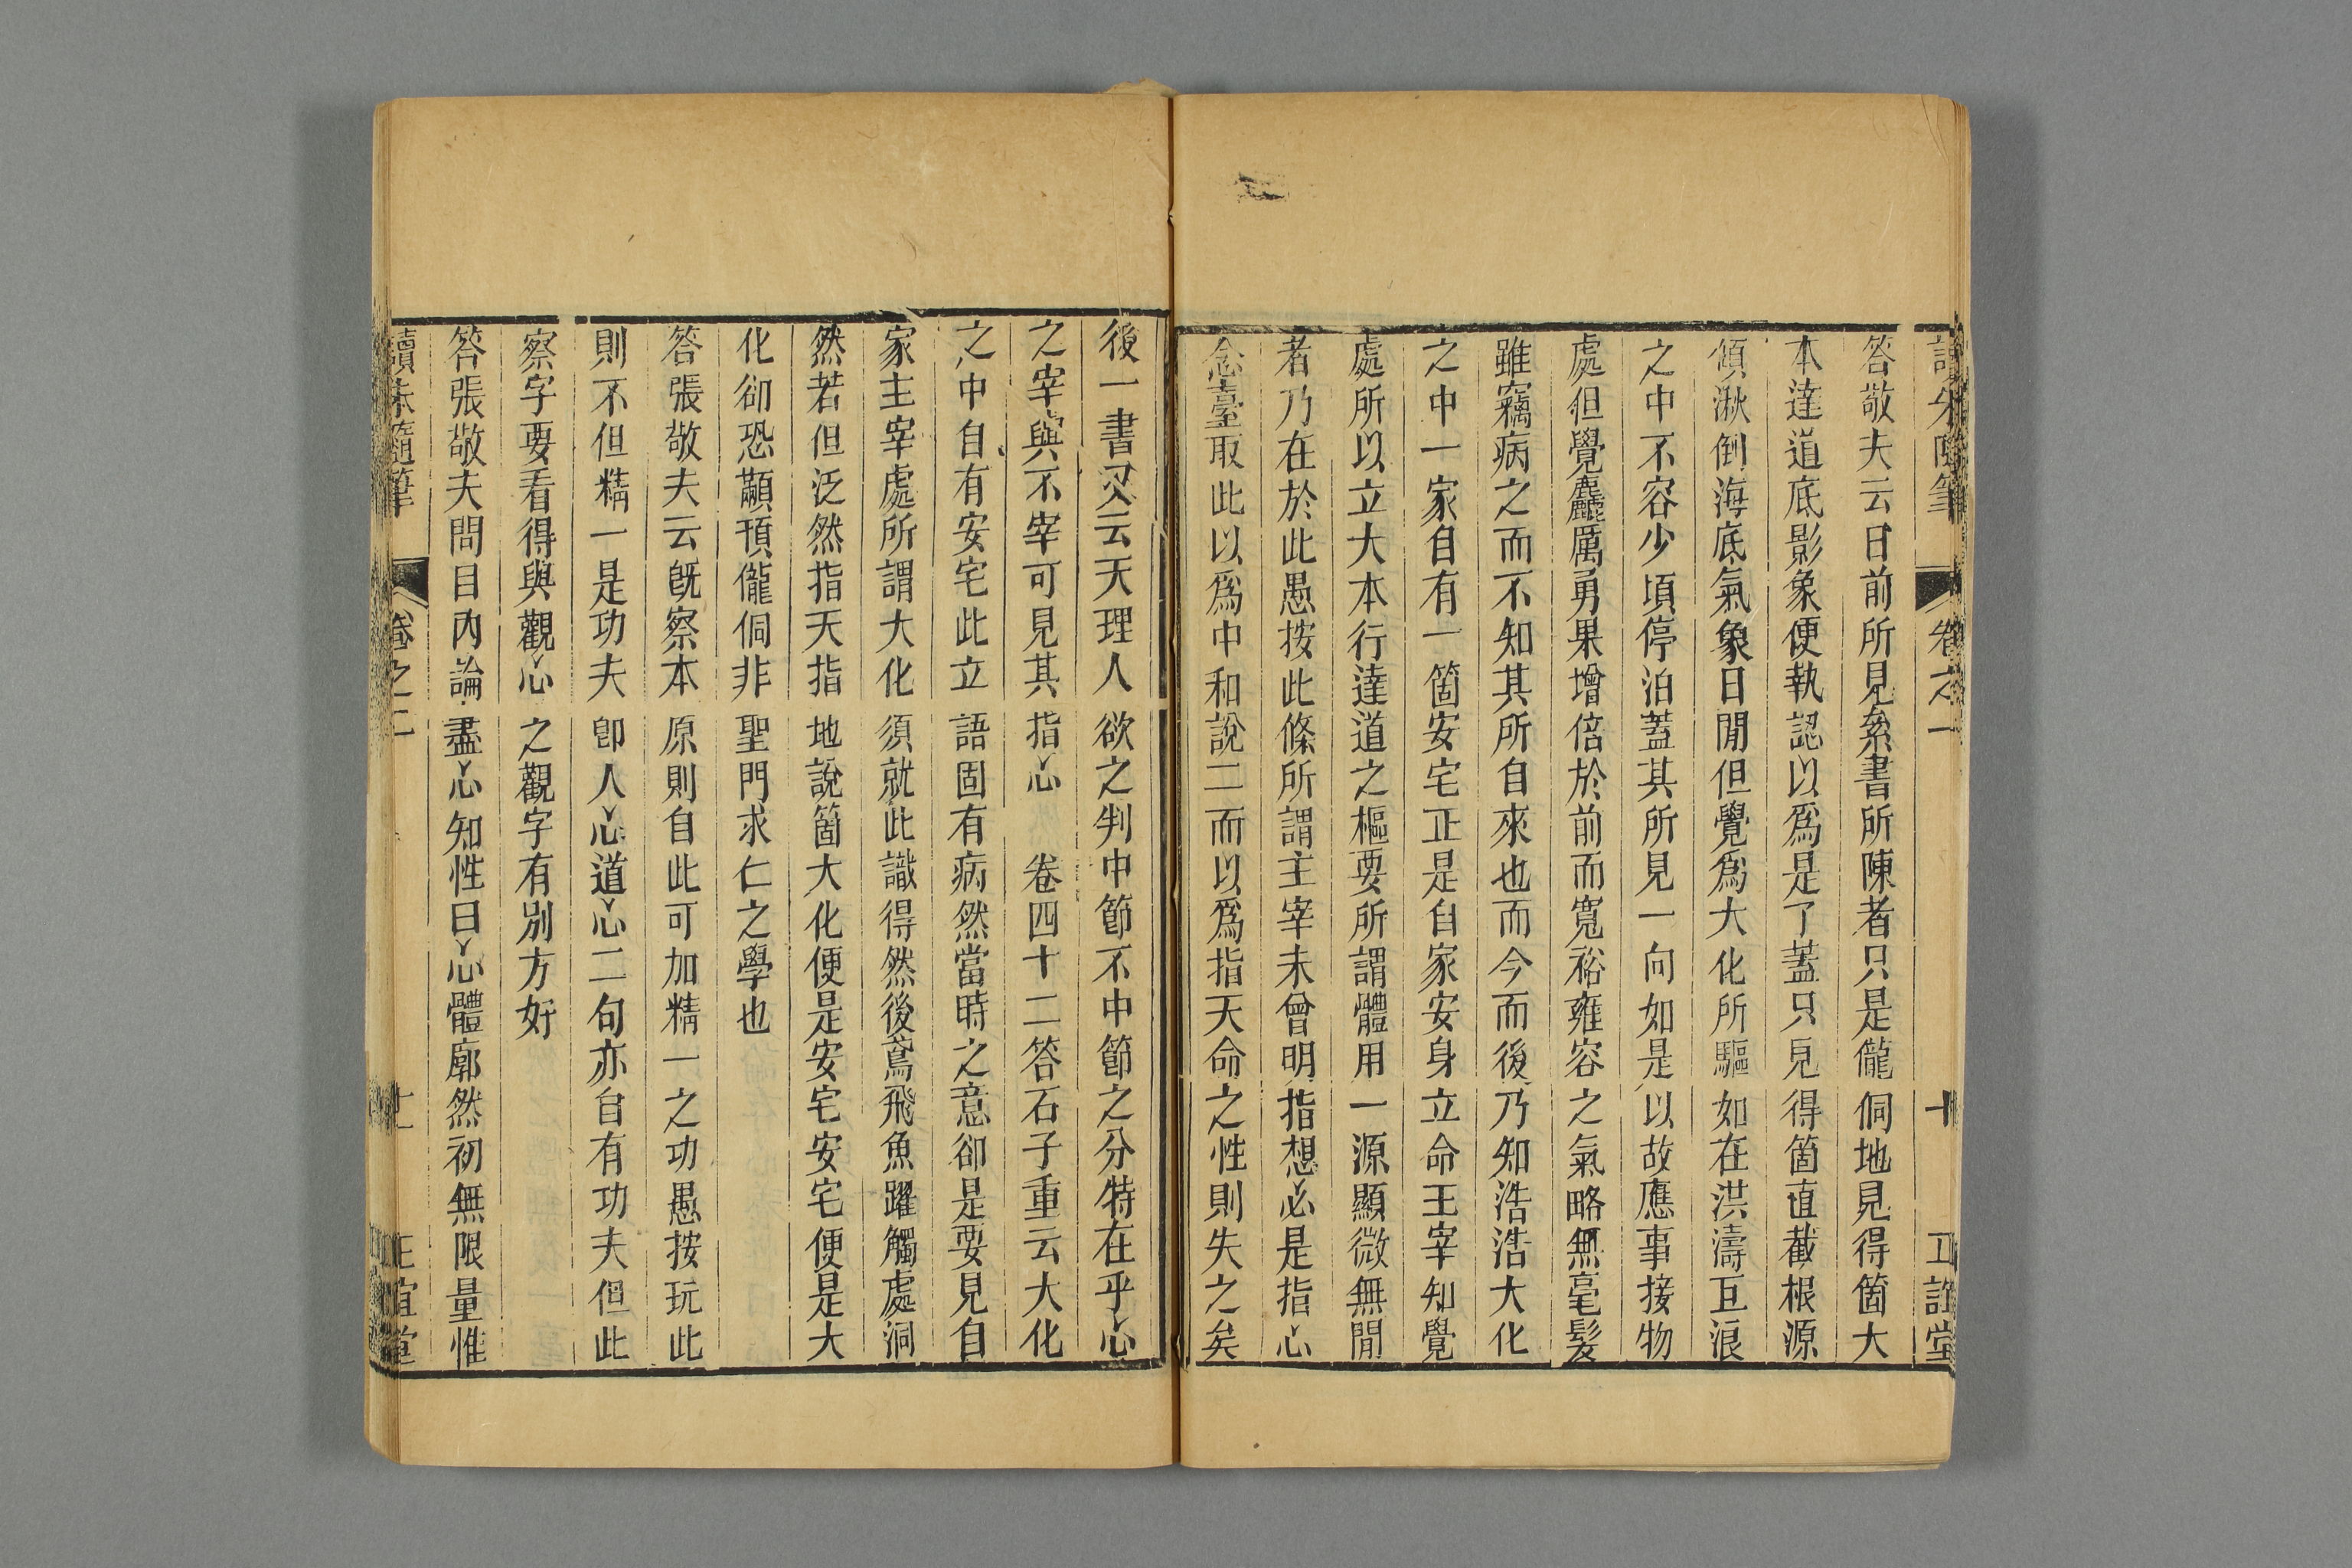 讀朱隨筆 卷之一 十 正誼堂
答敬夫云日前所見絫書所陳者只是儱侗地見得箇大
本達道底影象便執認以爲是了蓋只見得箇直截根源
傾湫倒海底氣象日閒但覺爲大化所驅如在洪濤巨浪
之中不容少頃停泊蓋其所見一向如是以故應事接物
處但覺麤厲勇果增倍於前而寬裕雍容之氣略無毫髮
雖竊病之而不知其所自來也而今而後乃知浩浩大化
之中一家自有一箇安宅正是自家安身立命王宰知覺
處所以立大本行達道之樞要所謂體用一源顯微無閒
者乃在於此愚按此條所謂主宰未曾明指想必是指心
念臺取此以爲中和說二而以爲指天命之性則失之矣
後一書又云天理人欲之判中節不中節之分特在乎心
之宰與不宰可見其指心 卷四十二答石子重云大化
之中自有安宅此立語固有病然當時之意卻是要見自
家主宰處所謂大化須就此識得然後鳶飛魚躍觸處洞
然若但泛然指天指地說箇大化便是安宅安宅便是大
化卻恐顢頇儱侗非聖門求仁之學也
答張敬夫云旣察本原則自此可加精一之功愚按玩此
則不但精一是功夫卽人心道心二句亦自有功夫但此
察字要看得與觀心之觀字有別方好
答張敬夫問目內論盡心知性曰心體廓然初無限量惟
讀朱隨筆 卷之一 十一 正誼堂